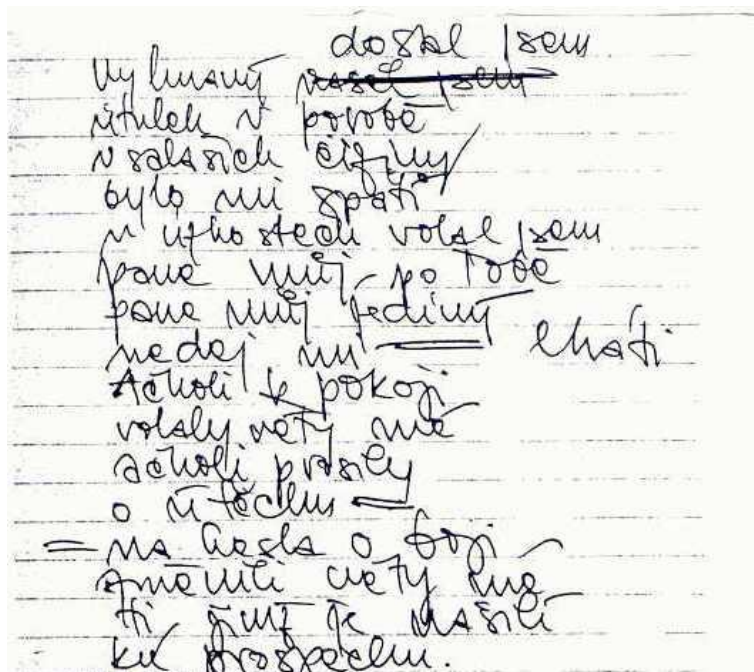 dostal jsem
Vylhaný našel jsem
útulek v porobě
v salaších ciziny
bylo mi spáti
v úzkostech volal jsem
pane můj po Tobě
pane můj jediný
nedej mi lháti
Ačkoli k pokoji
volaly věty mé
ačkoli prosily
o útěchu
= na hesla o boji
změnili věty mé
ti jimž je násilí
ku prospěchu.